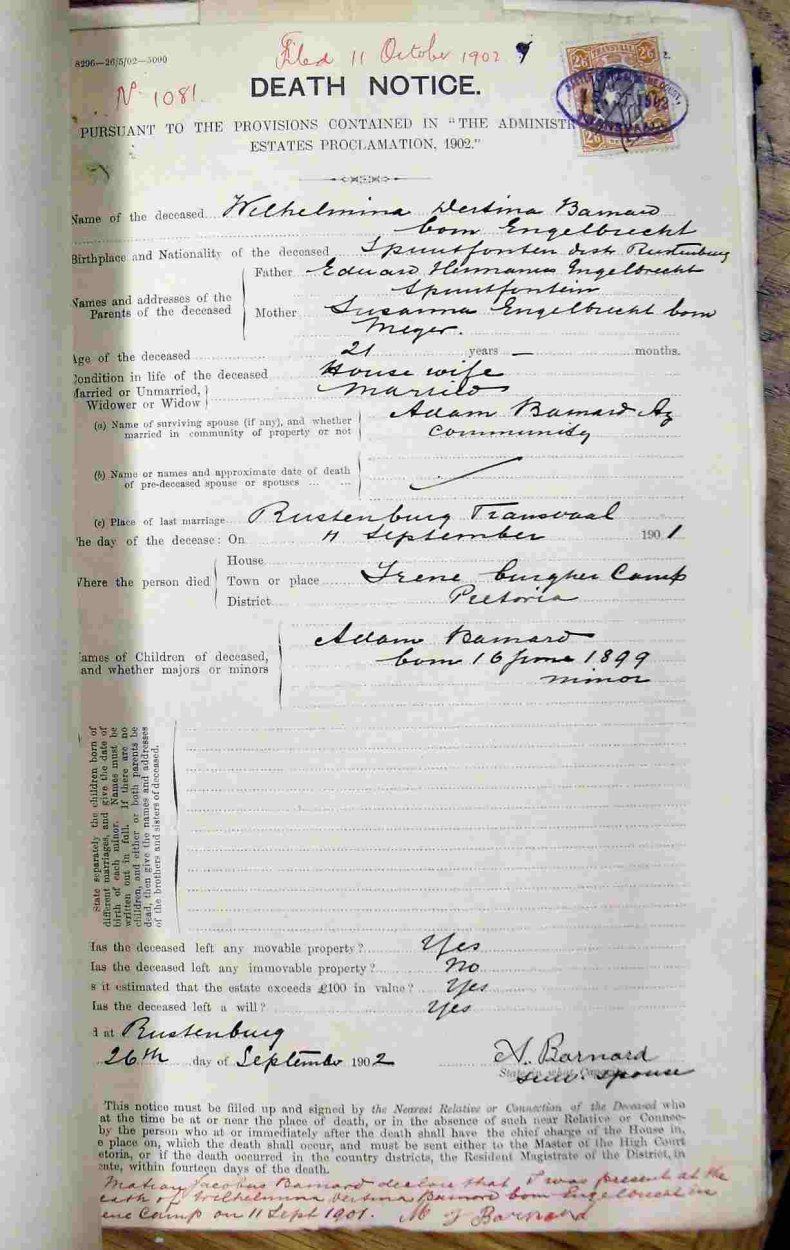 Filed 11 October 1902
8296—26/5/02—5000
No 1081
DEATH NOTICE.
PURSUANT TO THE PROVISIONS CONTAINED IN "THE ADMINISTR
ESTATES PROCLAMATION, 1902."
TRANSVAAL
2/6 2/6
Name of the deceased Wilhelmina Dertina Barnard
born Engelbrecht
Birthplace and Nationality of the deceased Spuntfontein distr Rustenburg
Names and addresses of the Parents of the deceased
Father Eduard Hermanus Engelbrecht
Spuntfontein
Mother Susanna Engelbrecht born
Meyer.
Age of the deceased 21 years — months.
Condition in life of the deceased House wife
Married or Unmarried, Widower or Widow Married
(a) Name of surviving spouse (if any), and whether married in community of property or not
Adam Barnard
Community
(b) Name or names and approximate date of death
of pre-deceased spouse or spouses ... ...
(c) Place of last marriage Rustenburg Transvaal
The day of the decease: On 11 September 1901
Where the person died
House
Town or place Irene burgher Camp
District Pretoria
ames of Children of deceased,
and whether majors or minors
Adam Barnard
born 16 June 1899
minor
State separately the children born of
different marriages, and give the date of
birth of each minor. Names must be
written out in full. If there are no
children, and either or both parents be
dead, then give the names and addresses
of the brothers and sisters of deceased.
Has the deceased left any movable property? Yes
Has the deceased left any immovable property? No
s it estimated that the estate exceeds £100 in value? Yes
Has the deceased left a will? Yes
d at Rustenburg
26th day of September 1902
A. Barnard
Surv. spouse
This notice must be filled up and signed by the Nearest Relative or Connection of the Deceased who
at the time be at or near the place of death, or in the absence of such near Relative or Connec-
by the person who at or immediately after the death shall have the chief charge of the House in,
e place on, which the death shall occur, and must be sent either to the Master of the High Court
etoria, or if the death occurred in the country districts, the Resident Magistrate of the District, in
uate, within fourteen days of the death.
Jacobus Barnard declare that I was present at the
eath of Wilhelmina Dertina Barnard born Engelbrecht in
ene Camp on 11 Sept 1901. M J Barnard